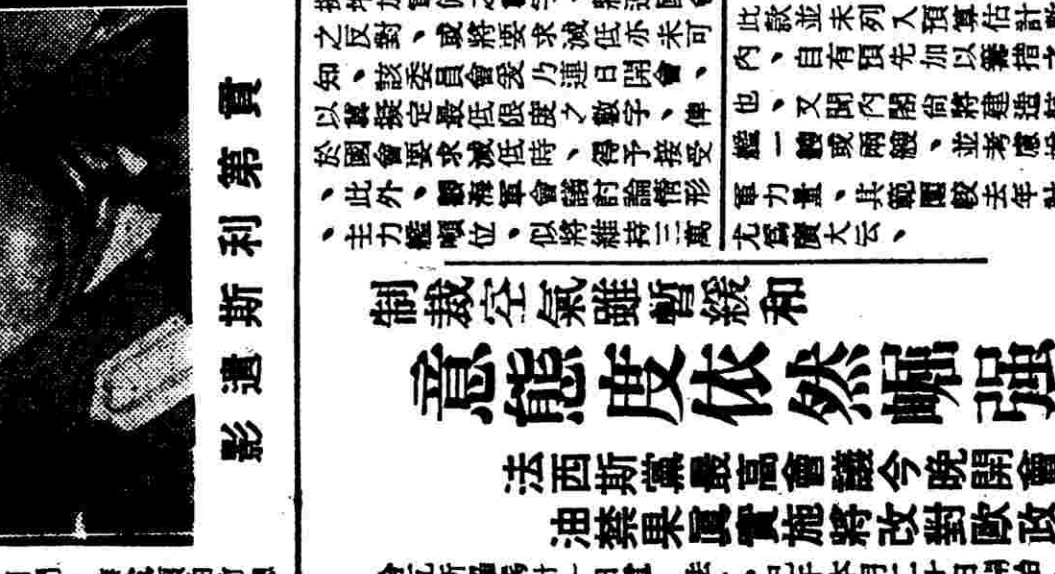 貫第利斯遺影
之反對、或將要求減低亦未可
知、該委員會爰乃連日開會、
以冀擬定最低限度之數字、俾
於國會要求減低時、得予接受
、此外、觀海軍會議討論情形
、主力艦噸位、似將維持三萬
此款並未列入預算估計
內、自有預先加以籌措
也、又聞內閣尚將建造
艦一艘或兩艘、並考慮
軍力量、其範圍較去年
尤爲廣大云、
制裁空氣雖暫緩和
意態度依然崛强
法西斯黨最高會議今晚開會
油禁果眞實施將改對歐政